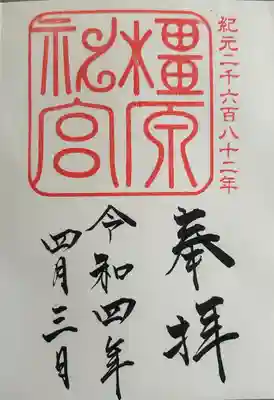 紀元二千六百八十二年
橿原
神宮
奉拝
令和四年
四月三日